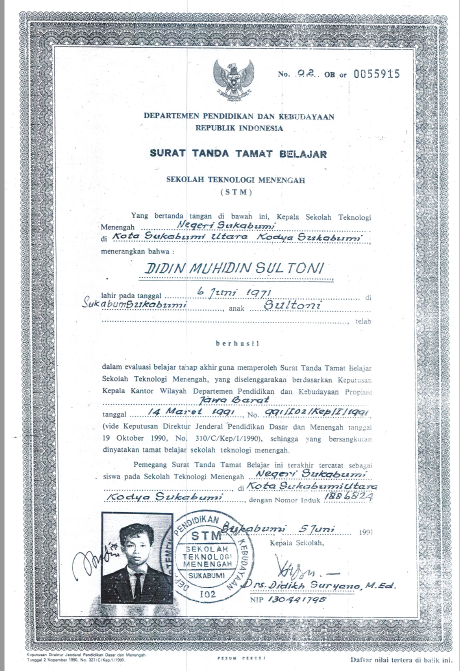 No. 02 OB or 0055915
DEPARTEMEN PENDIDIKAN DAN KEBUDAYAAN
REPUBLIK INDONESIA
SURAT TANDA TAMAT BELAJAR
SEKOLAH TEKNOLOGI MENENGAH
( STM )
Yang bertanda tangan di bawah ini, Kepala Sekolah Teknologi
Menengah Negeri Sukabumi
di Kota Sukabumi Utara Kodya Sukabumi
menerangkan bahwa :
DIDIN MUHIDIN SULTONI
lahir pada tanggal 6 Juni 1971 di
Sukabumi, anak Sultoni
telah
berhasil
dalam evaluasi belajar tahap akhir guna memperoleh Surat Tanda Tamat Belajar
Sekolah Teknologi Menengah, yang diselenggarakan berdasarkan Keputusan
Kepala Kantor Wilayah Departemen Pendidikan dan Kebudayaan Propinsi
Jawa Barat
tanggal 14 Maret 1991 No. 991/I02/Kep/E/1991
(vide Keputusan Direktur Jenderal Pendidikan Dasar dan Menengah tanggal
19 Oktober 1990, No. 310/C/Kep/I/1990), sehingga yang bersangkutan
dinyatakan tamat belajar sekolah teknologi menengah.
Pemegang Surat Tanda Tamat Belajar ini terakhir tercatat sebagai
siswa pada Sekolah Teknologi Menengah Negeri Sukabumi
di Kota Sukabumi Utara
Kodya Sukabumi dengan Nomor Induk
Sukabumi 5 Juni 1991
Kepala Sekolah,
DEPARTEMEN PENDIDIKAN DAN KEBUDAYAAN
STM
SEKOLAH
TEKNOLOGI
MENENGAH
SUKABUMI
I02
Drs. Didikh Suryano, M.Ed.
NIP 130421798
Keputusan Direktur Jenderal Pendidikan Dasar dan Menengah
Tanggal 2 Nopember 1990, No. 321/C/Kep/I/1990.
PERUM PERURI
Daftar nilai tertera di balik ini.